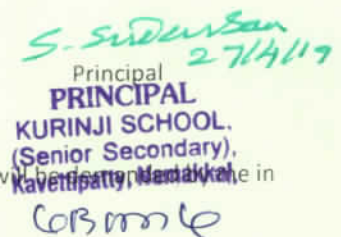 S. Sridersan
27/4/19
Principal
PRINCIPAL
KURINJI SCHOOL.
(Senior Secondary),
Kavettipatty, Namakkal,
will be demanded by me in